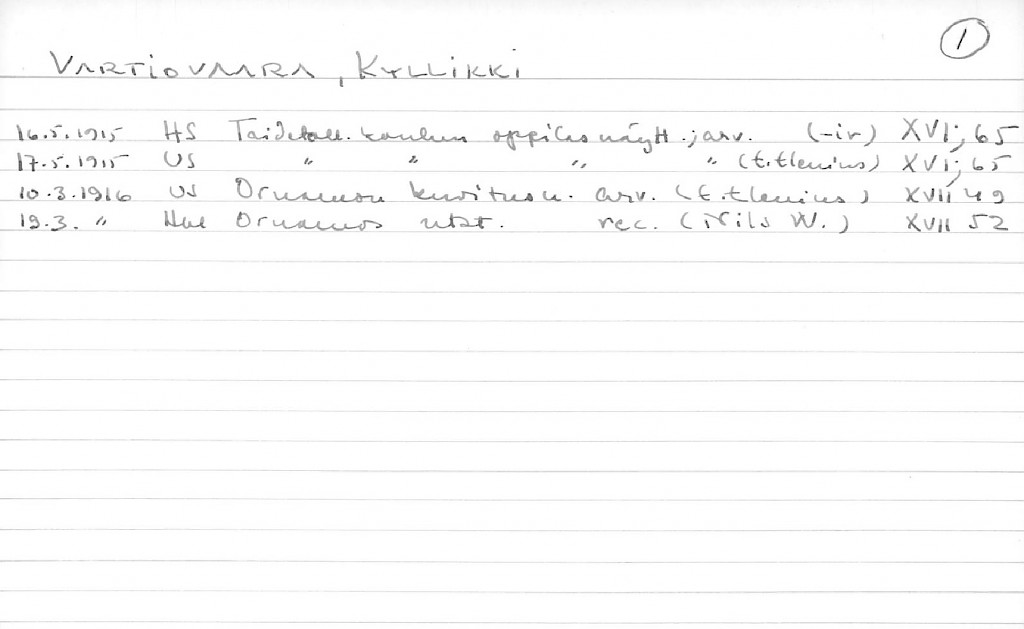 1
VARTIOVAARA, KYLLIKKI
16.5.1915 HS Taideteoll. koulun oppilasnäytt. arv. (-ir) XVI; 65
17.5.1915 US " " " " (E. Elenius) XVI; 65
10.3.1916 US Ornamon arv. (E. Elenius) XVII 49
19.3. " Ornamos utst. rec. (Nils W.) XVII 52